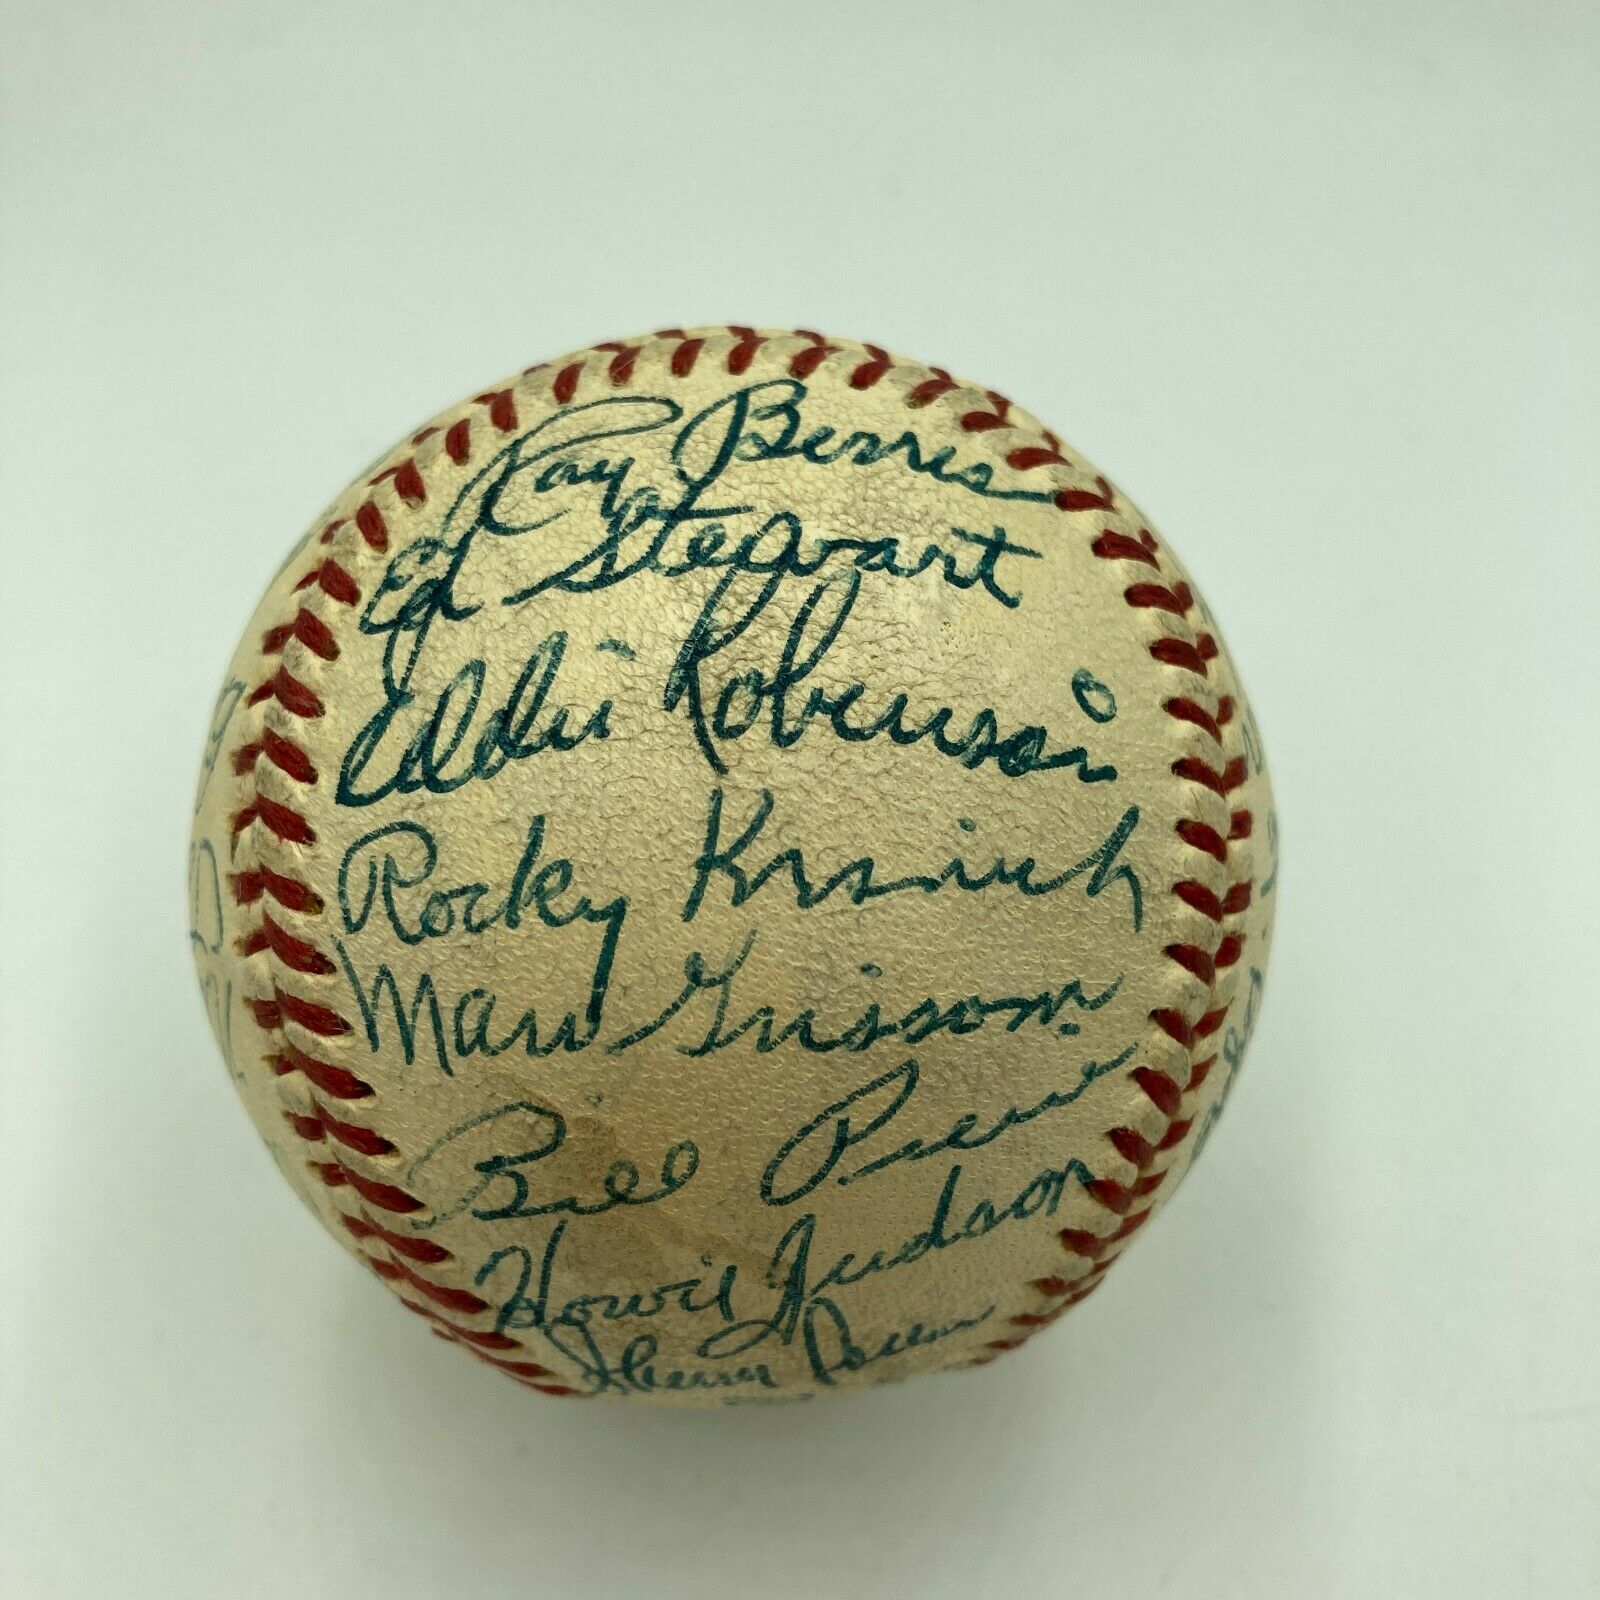 Ray Berres
Ed Stewart
Eddie Robinson
Rocky Krsnich
Marv Grissom
Bill Pierce
Howie Judson
Sherm Lollar